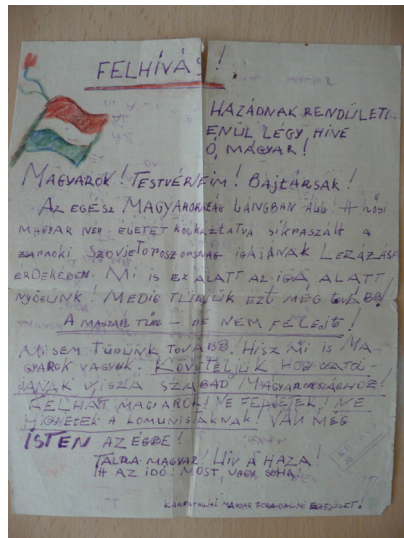 FELHÍVÁS!
HAZÁDNAK RENDÜLETL-
ENÜL LÉGY HÍVE
Ó, MAGYAR!
MAGYAROK! TESTVÉREIM! BAJTÁRSAK!
AZ EGÉSZ MAGYARORSZÁG LÁNGBAN ÁLL! A HŐSI
MAGYAR NÉP ÉLETÉT KOCKÁZTATVA SÍKRASZÁLT A
ZARNOKI SZOVJETOROSZORSZÁG IGÁJÁNAK LERÁZÁSA
ÉRDEKÉBEN. MI IS EZ ALATT AZ IGA ALATT
NYÖGÜNK! MEDIG TŰRJÜK EZT MÉG TOVÁBB!
A MAGYAR TŰR – DE NEM FELEJT!
MI SEM TŰRÜNK TOVÁBB. HISZ MI IS MA-
GYAROK VAGYUK. KÖVETELJÜK HOGY CSATOL-
JANAK VISZA SZABAD MAGYARORSZÁGHOZ!
FELHÁT MAGYAROK! NE FÉLJETEK! NE
HIGYJETEK A KOMUNISTÁKNAK! VAN MÉG
ISTEN AZ ÉGBE!
TALPRA MAGYAR! HÍV A HAZA!
ITT AZ IDŐ MOST, VAGY SOHA!
KÁRPÁTALJAI MAGYAR FORRADALMI EGYESÜLET!